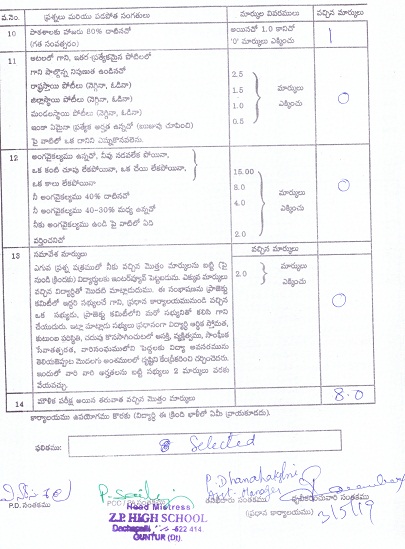 వ.నెం. ప్రశ్నలు మరియు పడపోత సంగతులు మార్కుల వివరములు వచ్చిన మార్కులు
10 పాఠశాలకు హాజరు 80% దాటినచో అయినచో 1.0 కానిచో 1
(గత సంవత్సరం) '0' మార్కులు ఎక్కించు
11 ఆటలలో గాని, ఇతర ప్రత్యేకమైన పోటీలలో
గాని పాల్గొన్న నిపుణత ఉండినచో 2.5
రాష్ట్రస్థాయి పోటీలు (నెగ్గినా, ఓడినా) 1.5 మార్కులు
జిల్లాస్థాయి పోటీలు (నెగ్గినా, ఓడినా) 1.0 ఎక్కించు 0
మండలస్థాయి పోటీలు (నెగ్గినా, ఓడినా) 0.5
ఇంకా ఏమైనా ప్రత్యేక అర్హత ఉన్నచో (ఋజువు చూపించి)
పై వాటిలో ఒక దానిని ఎన్నుకొనవలెను.
12 అంగవైకల్యము ఉన్నచో, నీవు నడవలేక పోయినా,
ఒక కంటి చూపు లేకపోయినా, ఒక చేయి లేకపోయినా, 15.00
ఒక కాలు లేకపోయినా 8.0 మార్కులు 0
నీ అంగవైకల్యము 40% దాటినచో 4.0
నీ అంగవైకల్యము 40-30% మధ్య ఉన్నచో ఎక్కించు
నీకు అంగవైకల్యము ఉండి పై వాటిలో ఏది 2.0
వర్తించనిచో
13 సమావేశ మార్కులు వచ్చిన మార్కులు
ఎగువ ప్రశ్న పత్రములో నీకు వచ్చిన మొత్తం మార్కులను బట్టి (పై
నుండి క్రిందకు) విద్యార్థులకు ఇంటర్వ్యూకి పెట్టబడును. ఎక్కువ మార్కులు 2.0 మార్కులు
వచ్చిన విద్యార్థితో మొదటి మాట్లాడుదుము. ఈ సంభాషణను ప్రాజెక్టు
కమిటీలో ఇద్దరే సభ్యులచే గాని, ప్రధాన కార్యాలయమునుండి వచ్చిన ఎక్కించు
ఒక సభ్యుడు, ప్రాజెక్టు కమిటీలోని మరో సభ్యునితో కలిసి గాని 0
చేయుదురు. ఇట్లా మాట్లాడు సభ్యులు ప్రధానంగా విద్యార్థి ఆర్థిక స్తోమత,
కుటుంబ పరిస్థితి, చదువు కొనసాగించుటలో ఆసక్తి, వ్యక్తిత్వము, సాంఘిక
ఇందులో వారి వారి అర్హతలను బట్టి సభ్యులు 2 మార్కులు వరకు
వేయవచ్చు.
14 మౌఖిక పరీక్ష అయిన తరువాత వచ్చిన మొత్తం మార్కులు 8.0
కార్యాలయం ఉపయోగము కొరకు (విద్యార్థి ఈ క్రింది ఖాళీలో ఏమీ వ్రాయకూడదు).
ఫలితము: Selected
P. Dhanalakshmi
Asst. Manager
P.D. సంతకము
Head Mistress
(ప్రధాన కార్యాలయము) 3/5/19
Z.P. HIGH SCHOOL
522 414
GUNTUR (Dt)